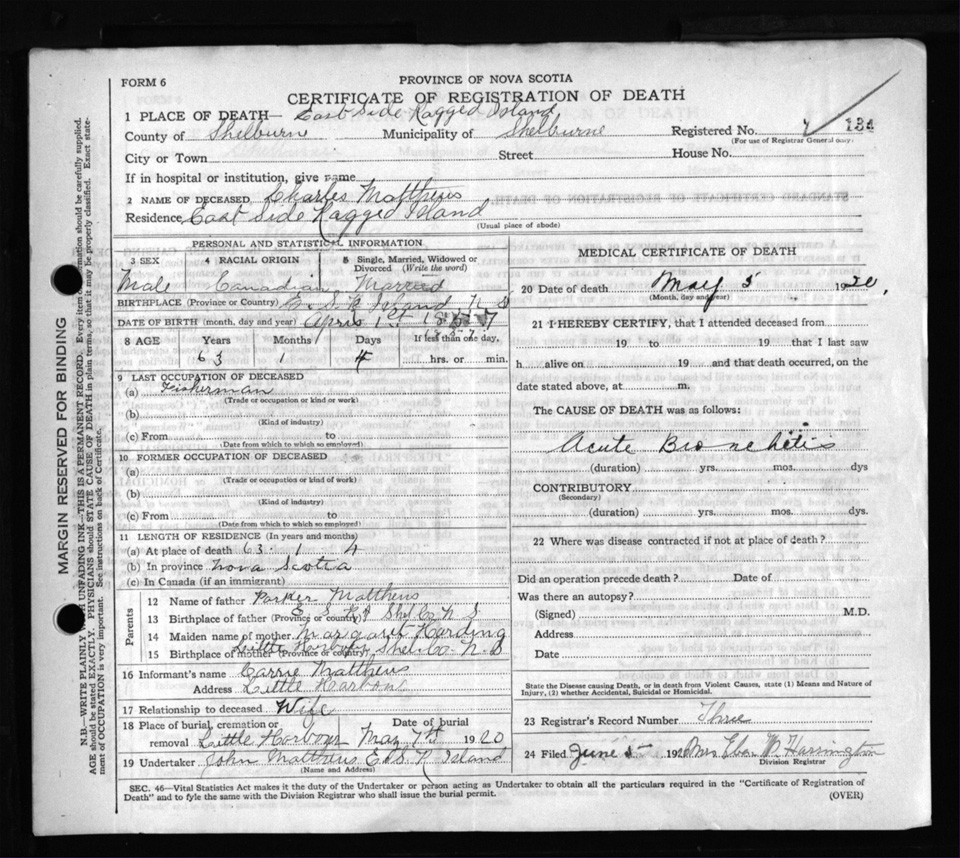 FORM 6
PROVINCE OF NOVA SCOTIA
CERTIFICATE OF REGISTRATION OF DEATH
1 PLACE OF DEATH— East Side Ragged Island
County of Shelburne Municipality of Shelburne Registered No. 134
(For use of Registrar General only)
City or Town Street House No.
If in hospital or institution, give name
2 NAME OF DECEASED Charles Matthews
Residence East Side Ragged Island
(Usual place of abode)
PERSONAL AND STATISTICAL INFORMATION
3 SEX 4 RACIAL ORIGIN 5 Single, Married, Widowed or Divorced (Write the word)
Male Canadian Married
BIRTHPLACE (Province or Country) E. S. R Island N S
DATE OF BIRTH (month, day and year) April 1st 1857
8 AGE Years Months Days If less than one day,
63 1 4 hrs. or min.
9 LAST OCCUPATION OF DECEASED
(a) Fisherman
(Trade or occupation or kind or work)
(b)
(Kind of industry)
(c) From to
(Date from which to which so employed)
10 FORMER OCCUPATION OF DECEASED
(a)
(Trade or occupation or kind of work)
(b)
(Kind of industry)
(c) From to
(Date from which to which so employed)
11 LENGTH OF RESIDENCE (In years and months)
(a) At place of death 63 1 4
(b) In province Nova Scotia
(c) In Canada (if an immigrant)
Parents
12 Name of father Parker Matthews
13 Birthplace of father (Province or country) E. S. R I Shel Co N S
14 Maiden name of mother Margaret Harding
15 Birthplace of mother (Province or country) Little Harbour Shel. Co. N. S
16 Informant's name Carrie Matthews
Address Little Harbour
17 Relationship to deceased Wife
18 Place of burial, cremation or removal Little Harbour Date of burial May 7th 1920
19 Undertaker John Matthews E. S. R Island
(Name and Address)
MEDICAL CERTIFICATE OF DEATH
20 Date of death May 5 1920,
(Month, day and year)
21 I HEREBY CERTIFY, that I attended deceased from
19 to 19 that I last saw
h alive on 19 and that death occurred, on the
date stated above, at m.
The CAUSE OF DEATH was as follows:
Acute Bronchitis
(duration) yrs. mos. dys
CONTRIBUTORY
(Secondary)
(duration) yrs. mos. dys.
22 Where was disease contracted if not at place of death?
Did an operation precede death? Date of
Was there an autopsy?
(Signed) M.D.
Address
Date
State the Disease causing Death, or in death from Violent Causes, state (1) Means and Nature of
Injury, (2) whether Accidental, Suicidal or Homicidal.
23 Registrar's Record Number Three
24 Filed June 5 1920 Mrs Eben W Harrington
Division Registrar
SEC. 46—Vital Statistics Act makes it the duty of the Undertaker or person acting as Undertaker to obtain all the particulars required in the "Certificate of Registration of
Death" and to fyle the same with the Division Registrar who shall issue the burial permit. (OVER)
MARGIN RESERVED FOR BINDING
N.B.—WRITE PLAINLY UNFADING INK—THIS IS A PERMANENT RECORD. Every item of information should be carefully supplied.
AGE should be stated EXACTLY. PHYSICIANS should STATE CAUSE OF DEATH in plain terms, so that it may be properly classified. Exact statement of OCCUPATION is very important. See instructions on back of Certificate.